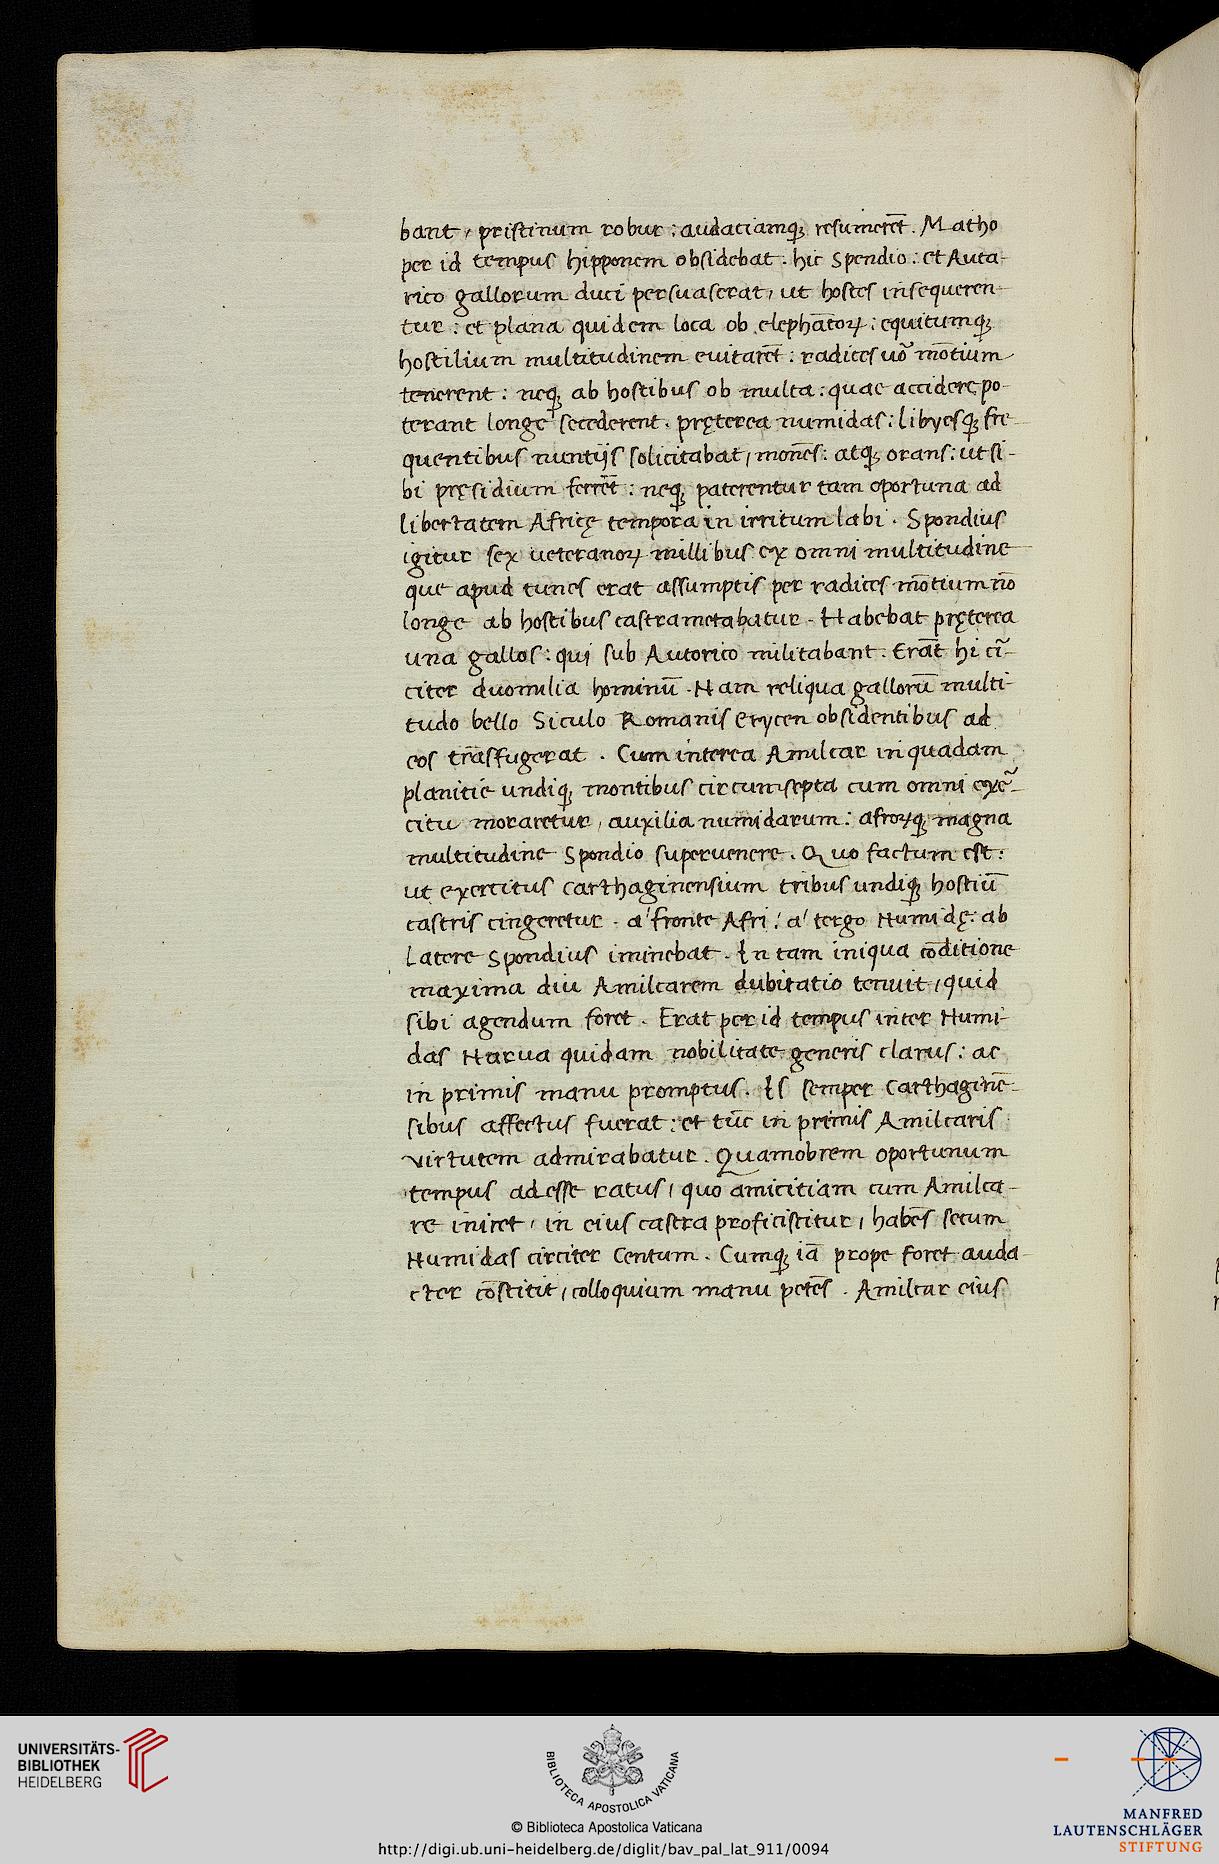 bant, pristinum robur: audaciamq; resumerēt. Matho
per id tempus hipponem obsidebat. hic Spendio: et Auta-
rico gallorum duci persuaserat, ut hostes insequeren-
tur: et plana quidem loca ob elephātoꝝ: equitumq;
hostilium multitudinem euitarēt: radices uõ mōtium
tenerent: neq; ab hostibus ob multa: quae accidere po-
terant longe secederent. pręterea numidas: libyesq; fre-
quentibus nuntijs solicitabat, monēs: atq; orans: ut si-
bi pręsidium ferrēt: neq; paterentur tam oportuna ad
libertatem Africę tempora in irritum labi. Spondius
igitur sex ueteranoꝝ millibus ex omni multitudine
que apud tunes erat assumptis per radices mōtium nō
longe ab hostibus castrametabatur. Habebat pręterea
una gallos: qui sub Autorico militabant. Erāt hi cĩ-
citer duomilia hominū. Nam reliqua gallorū multi-
tudo bello Siculo Romanis Erycen obsidentibus ad
eos trāsfugerat. Cum interea Amilcar in quadam
planitie undiq; montibus circumsepta cum omni exẽ-
citu moraretur, auxilia numidarum: afroꝝq; magna
multitudine Spondio superuenere. Quo factum est:
ut exercitus Carthaginensium tribus undiq; hostiū
castris cingeretur. a' fronte Afri: a' tergo Numidę: ab
latere Spondius iminebat. In tam iniqua cōditione
maxima diu Amilcarem dubitatio tenuit, quid
sibi agendum foret. Erat per id tempus inter Numi-
das Narua quidam nobilitate generis clarus: ac
in primis manu promptus. Is semper Carthaginē-
sibus affectus fuerat: et tūc in primis Amilcaris
virtutem admirabatur. Quamobrem oportunum
tempus adesse ratus, quo amicitiam cum Amilca-
re iniret, in eius castra proficiscitur, habēs secum
Numidas circiter Centum. Cumq; iā prope foret auda-
cter cōstitit, colloquium manu petēs. Amilcar eius
UNIVERSITÄTS-
BIBLIOTHEK
HEIDELBERG
BIBLIOTECA APOSTOLICA VATICANA
© Biblioteca Apostolica Vaticana
http://digi.ub.uni-heidelberg.de/diglit/bav_pal_lat_911/0094
MANFRED
LAUTENSCHLÄGER
STIFTUNG